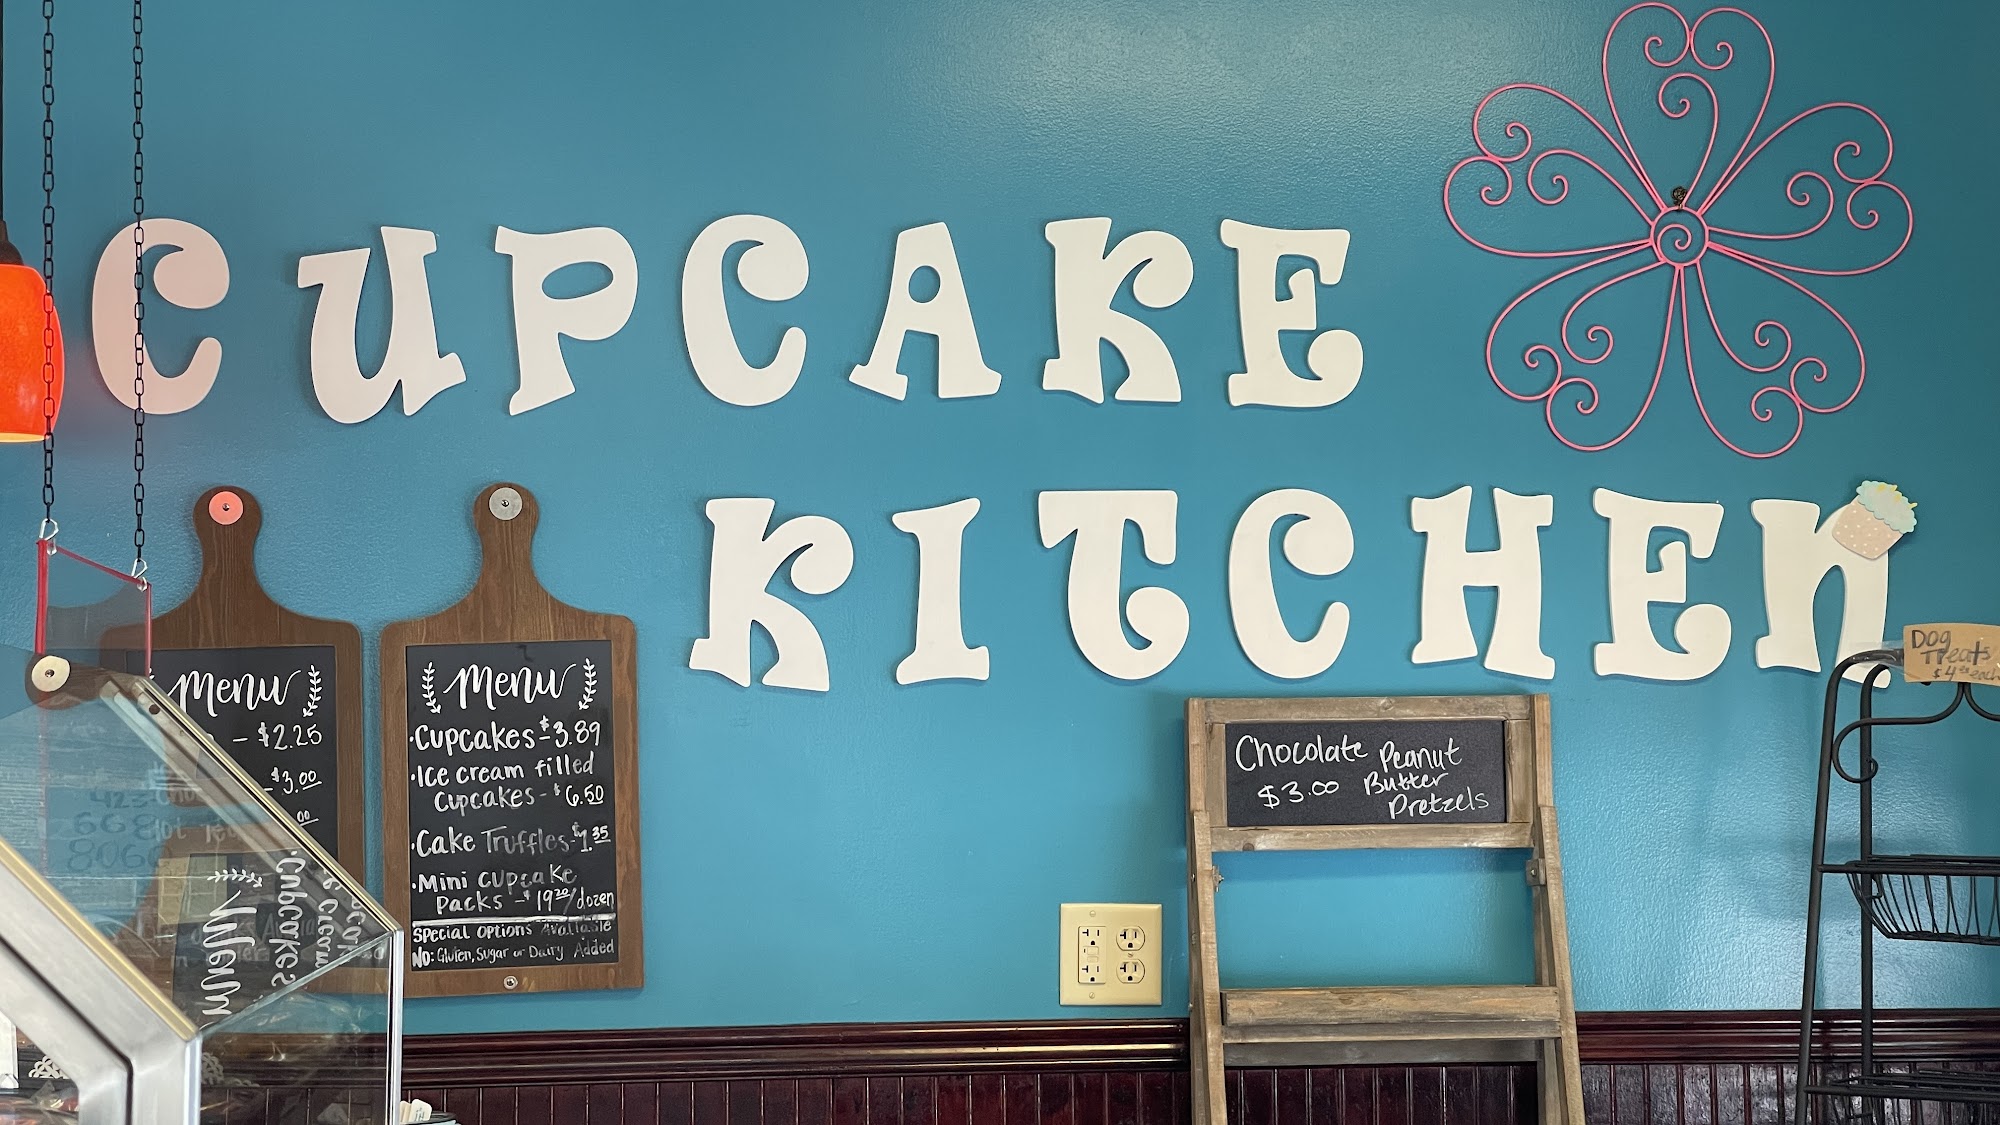 CUPCAKE
KITCHEN
Menu
- $2.25
- $3.00
Menu
·Cupcakes - $3.89
·Ice cream filled
cupcakes - $6.50
·Cake Truffles - $1.35
·Mini cupcake
packs - $19.20/dozen
Special options Available
No: Gluten, Sugar or Dairy Added
Chocolate Peanut
$3.00 Butter
Pretzels
Dog
Treats